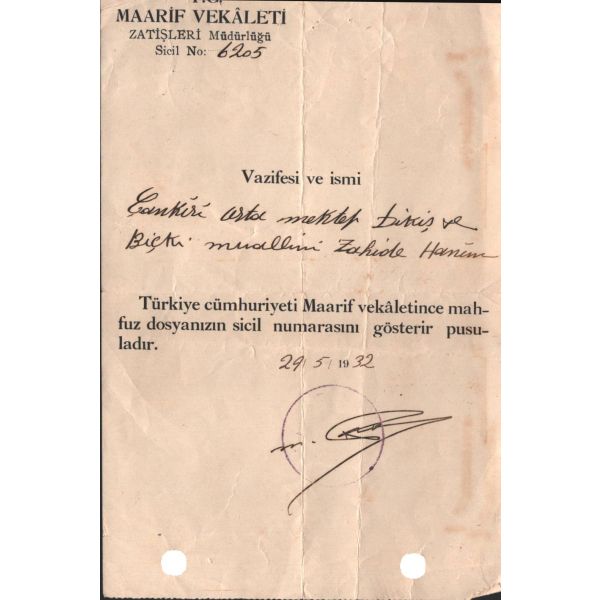 T.C.
MAARİF VEKÂLETİ
ZATİŞLERİ Müdürlüğü
Sicil No: 6205
Vazifesi ve ismi
Çankırı orta mektep Dikiş ve
Biçki muallimi Zahide Hanım
Türkiye cümhuriyeti Maarif vekâletince mah-
fuz dosyanızın sicil numarasını gösterir pusu-
ladır.
29/5/1932